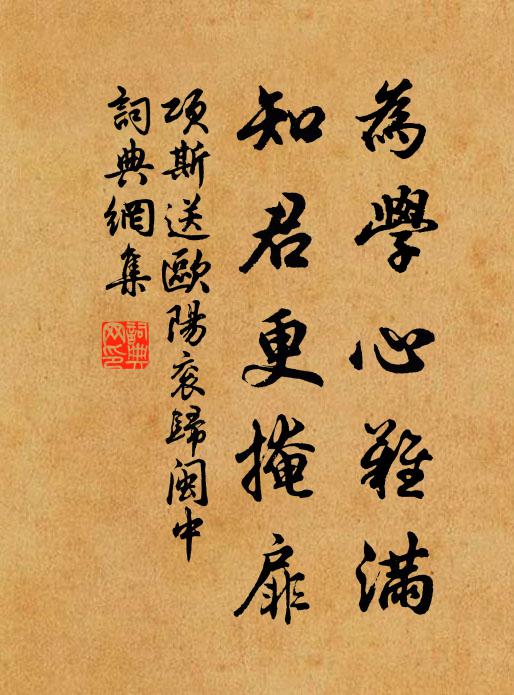 為學心難滿
知君更掩扉
項斯送歐陽袞歸閩中
詞典網集
詞典
网印